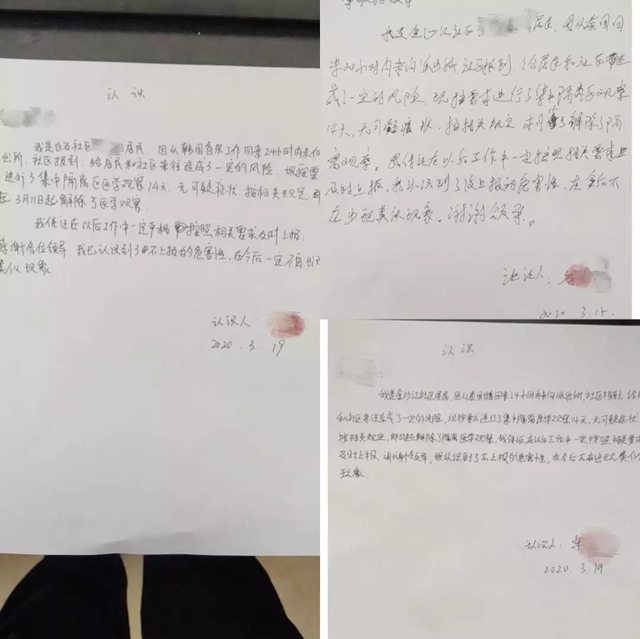 认识
我是白石社区 居民，因从韩国首尔工作回来24小时内未向
出所、社区报到，给居民和社区来往造成了一定的风险，现按要
进行了集中隔离医学观察14天，无可疑症状，按相关规定
起3月11日起解除了医学观察。
我保证在以后工作中一定 按照相关要求及时上报，
感谢各位领导，我已认识到了不上报的危害性，在今后一定不再出
类似现象。
认识人：
2020. 3. 19
我是金沙江社区 居民，因从泰国回
来24小时内未向派出所、社区报到，给居民和社区
成了一定的风险，现按要求进行了集中隔离医学观察
14天，无可疑症状，按相关规定 解除了隔
离观察。我保证在以后工作中一定按照相关要求
及时上报，我认识到了没上报的危害性，在今后不
在出现类似现象。谢谢领导。
认识人：
2020. 3. 19
认识
我是金沙江社区居民，因从泰国 回来24小时内未向派出所、社区报到，给
和社区来往造成了一定的风险，现按要求进行了集中隔离医学观察14天，无可疑症状
按相关规定，即日起解除了隔离医学观察，我保证在以后工作中一定按照相关要求
及时上报，谢谢领导，我认识到了不上报的危害性，在今后不在出现类似
现象。
认识人：
2020. 3. 19